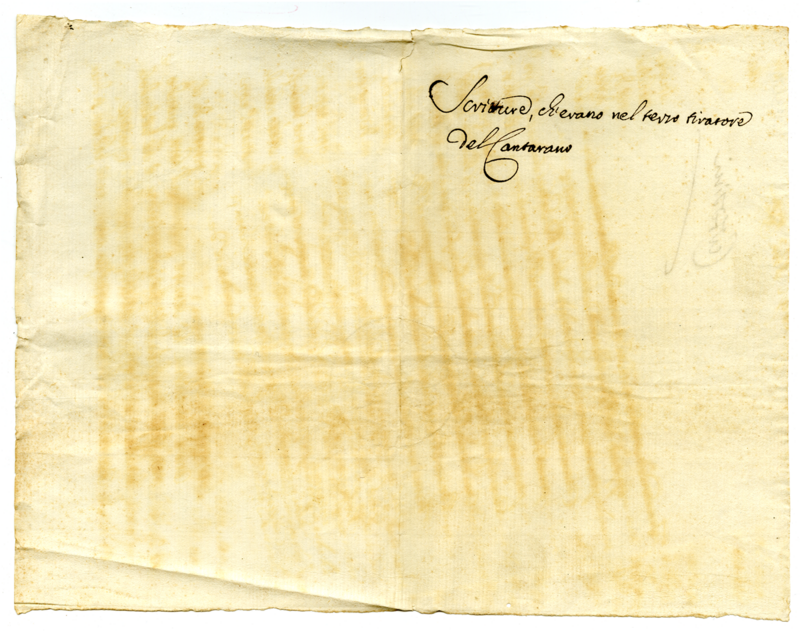 Scritture, ch'erano nel terzo tiratore
del Cantarano